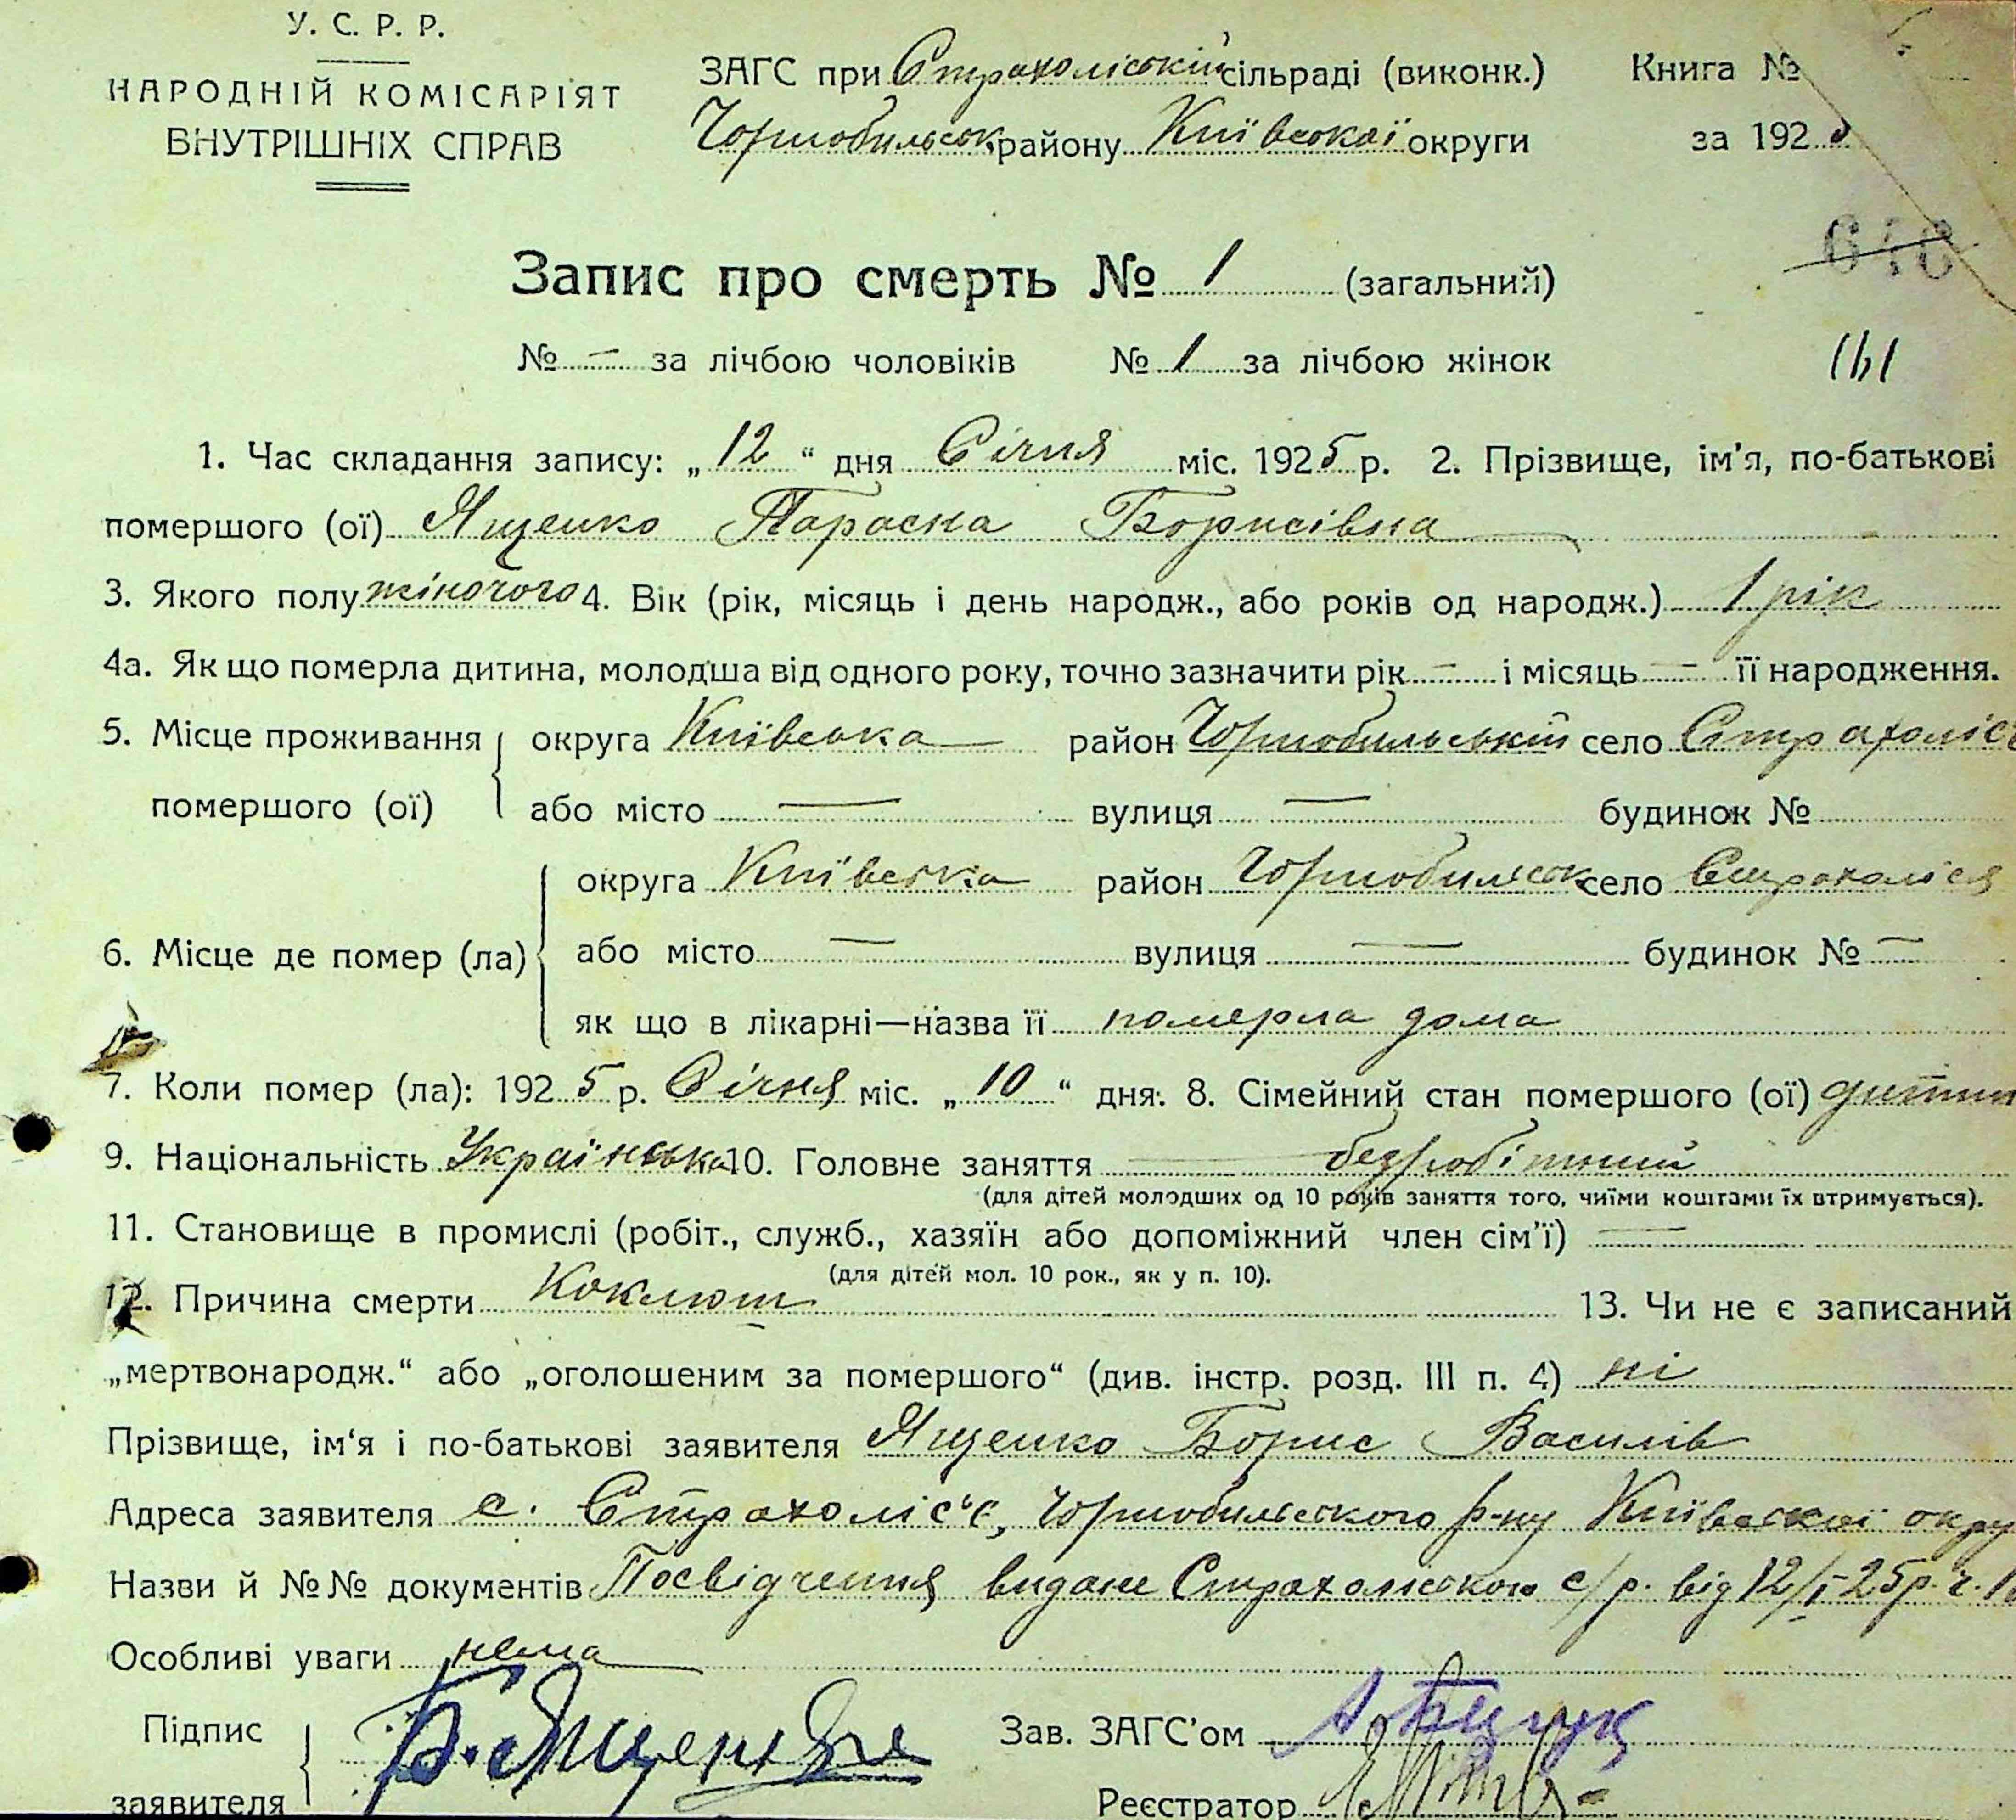 У. С. Р. Р.
НАРОДНІЙ КОМІСАРІЯТ
ВНУТРІШНІХ СПРАВ
ЗАГС при Страхоліській сільраді (виконк.)
Чорнобильськ. району Київської округи
Книга №
за 192
Запис про смерть № 1 (загальний)
№ — за лічбою чоловіків № 1 за лічбою жінок
1. Час складання запису: „12“ дня Січня міс. 1925 р. 2. Прізвище, ім'я, по-батькові
помершого (ої) Ященко Параска Борисівна
3. Якого полу жіночого 4. Вік (рік, місяць і день народж., або років од народж.) 1 рік
4а. Як що померла дитина, молодша від одного року, точно зазначити рік — і місяць — її народження.
5. Місце проживання помершого (ої) округа Київська район Чорнобильський село Страхоліс
або місто — вулиця — будинок №
6. Місце де помер (ла) округа Київська район Чорнобильськ село Страхолісся
або місто — вулиця — будинок № —
як що в лікарні—назва її померла дома
7. Коли помер (ла): 1925 р. Січня міс. „10“ дня. 8. Сімейний стан помершого (ої) дитин
9. Національність Українська 10. Головне заняття — безробітний
(для дітей молодших од 10 років заняття того, чиїми коштами їх втримується).
11. Становище в промислі (робіт., служб., хазяїн або допоміжний член сім'ї) —
(для дітей мол. 10 рок., як у п. 10).
12. Причина смерти Коклюш 13. Чи не є записаний
„мертвонародж.“ або „оголошеним за помершого“ (див. інстр. розд. III п. 4) ні
Прізвище, ім'я і по-батькові заявителя Ященко Борис Василів
Адреса заявителя с. Страхоліс'є, Чорнобильського р-ну Київської окру
Назви й №№ документів Посвідчення видане Страхоліською с/р. від 12/I-25р. ч. 1
Особливі уваги нема
Підпис заявителя Б. Ященко
Зав. ЗАГС'ом
Реєстратор